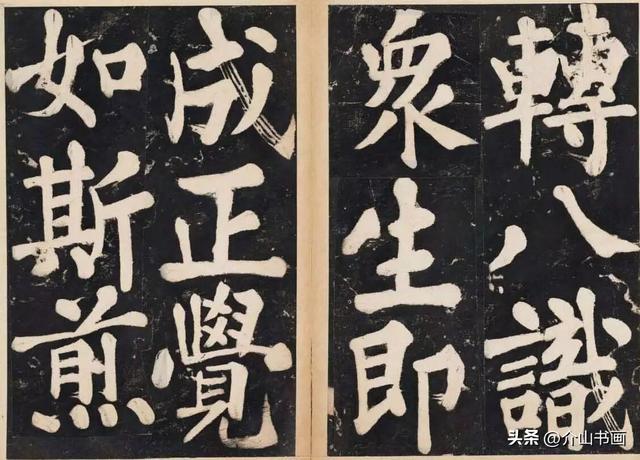 轉八識
眾生即
成正覺
如斯煎
头条@介山书画